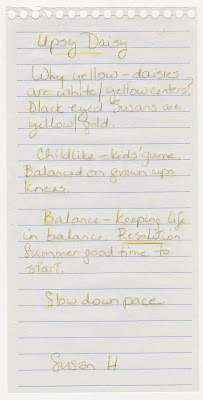 Upsy Daisy
Why yellow - daisies
are white/yellow centers?
Black eyed Susans are
yellow/gold.
Childlike - kids' game.
Balanced on grown ups
knees.
Balance - keeping life
in balance. Resolution
Summer good time to
start.
Slow down pace
Susan H